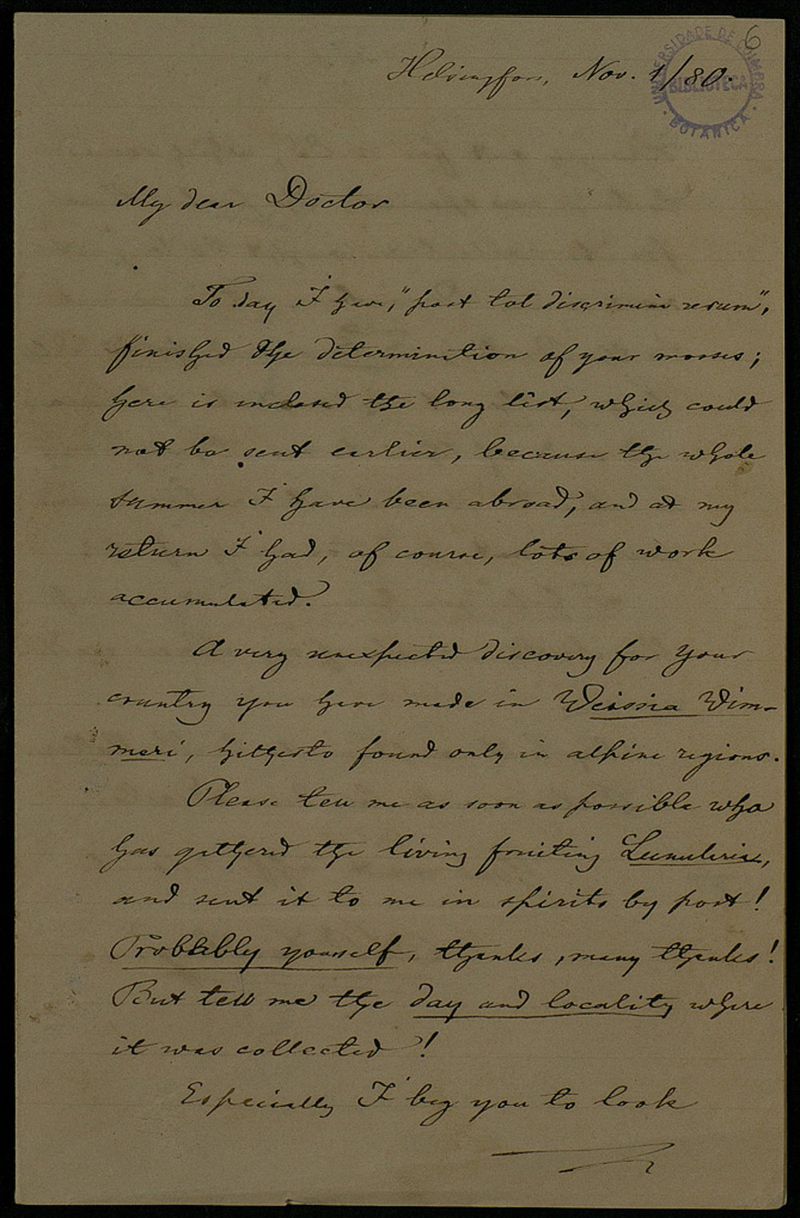 6
UNIVERSIDADE DE COIMBRA
BIBLIOTECA
BOTANICA
Helsingfors, Nov. 1/80.
My dear Doctor
To day I have, "post tot discrimina rerum",
finished the determination of your mosses;
here is inclosed the long list, which could
not be sent earlier, because the whole
summer I have been abroad, and at my
return I had, of course, lots of work
accumulated.
A very unexpected discovery for your
country you have made in Weissia Wim-
meri, hitherto found only in alpine regions.
Please tell me as soon as possible who
has gathered the living fruiting Lunularia,
and sent it to me in spirits by post!
Probably yourself, thanks, many thanks!
But tell me the day and locality where
it was collected!
Especially I beg you to look